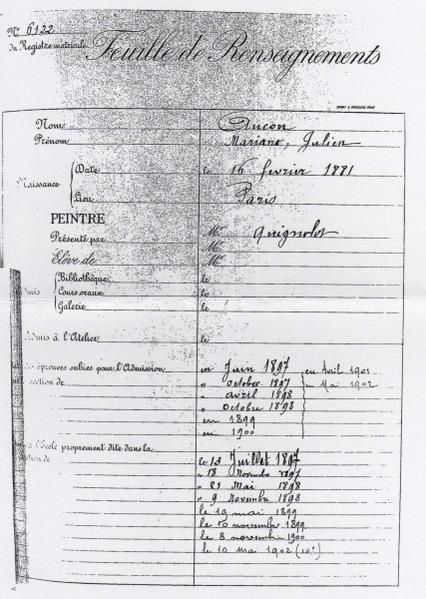 N° 6122
du Registre matricule
Feuille de Renseignements
Nom Ancon
Prénom Mariano, Julien
Naissance
Date le 16 février 1881
Lieu Paris
PEINTRE
Présenté par Mr Quignolot
Mr
Elève de Mr
Bibliothèque le
Cours oraux le
Galerie le
Admis à l'Atelier le
épreuves subies pour l'Admission en Juin 1897 en Avril 1901
section de " octobre 1897 en Mai 1902
" avril 1898
" octobre 1898
en 1899
en 1900
à l'Ecole proprement dite dans la
section de le 13 Juillet 1897
" 18 Novembre 1897
" 21 Mai 1898
" 9 Novembre 1898
le 19 mai 1899
le 10 novembre 1899
le 8 novembre 1900
le 10 mai 1902